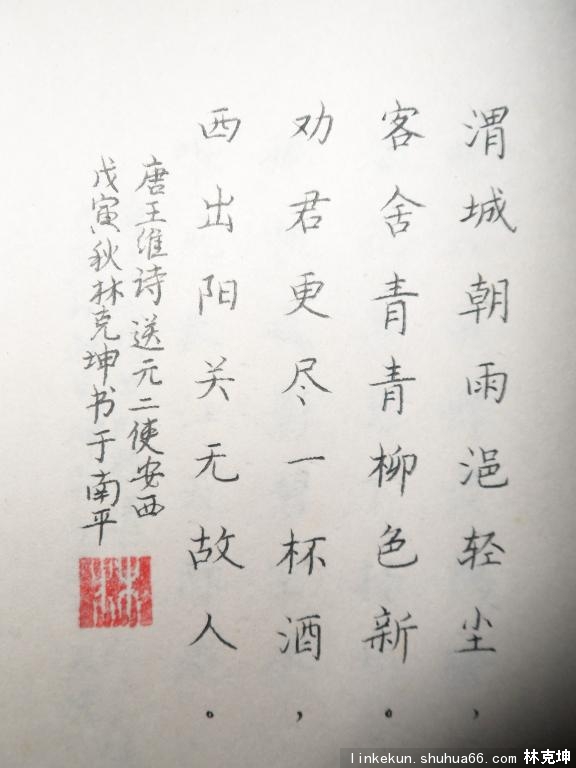 渭城朝雨浥轻尘，
客舍青青柳色新。
劝君更尽一杯酒，
西出阳关无故人。
唐王维诗送元二使安西
戊寅秋林克坤书于南平
linkekun.shuhua66.com 林克坤